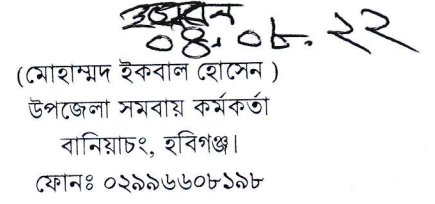 ০৪.০৮.২২
(মোহাম্মদ ইকবাল হোসেন )
উপজেলা সমবায় কর্মকর্তা
বানিয়াচং, হবিগঞ্জ।
ফোনঃ ০২৯৯৬৬০৮১৯৮